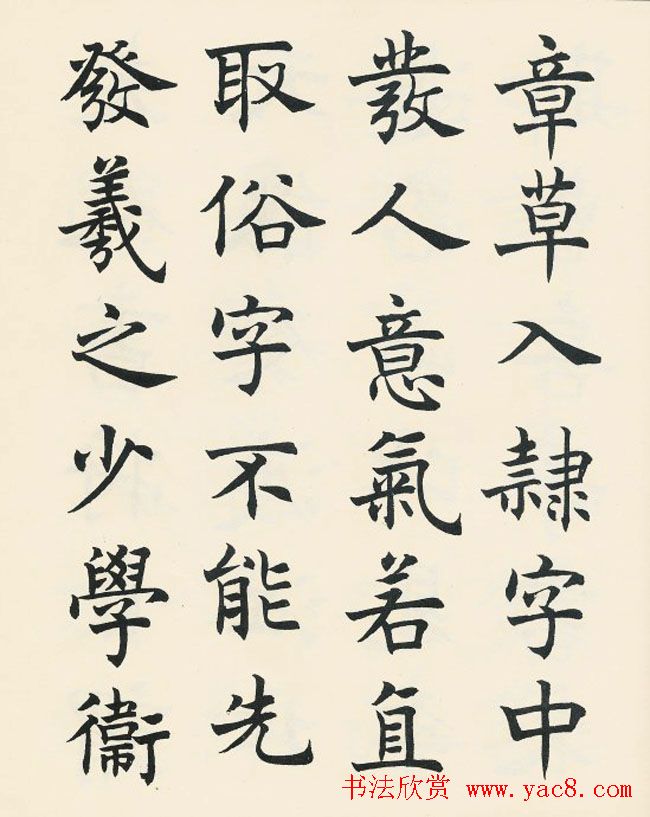 章草入隸字中
發人意氣若直
取俗字不能先
發羲之少學衞
书法欣赏 www.yac8.com